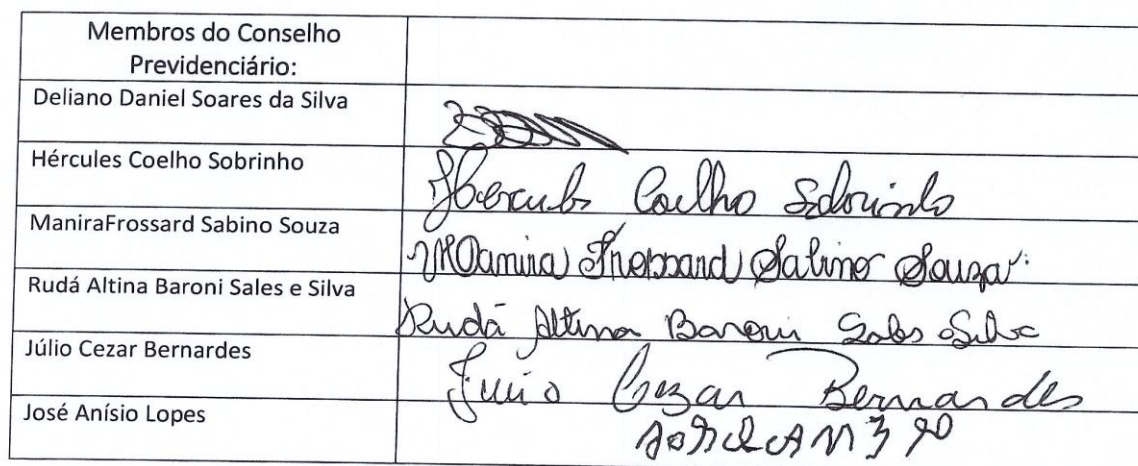 Membros do Conselho
Previdenciário:
Deliano Daniel Soares da Silva
Hércules Coelho Sobrinho
Hercules Coelho Sobrinho
ManiraFrossard Sabino Souza
Manira Frossard Sabino Souza
Rudá Altina Baroni Sales e Silva
Rudá Altina Baroni Sales e Silva
Júlio Cezar Bernardes
Julio Cezar Bernardes
José Anísio Lopes